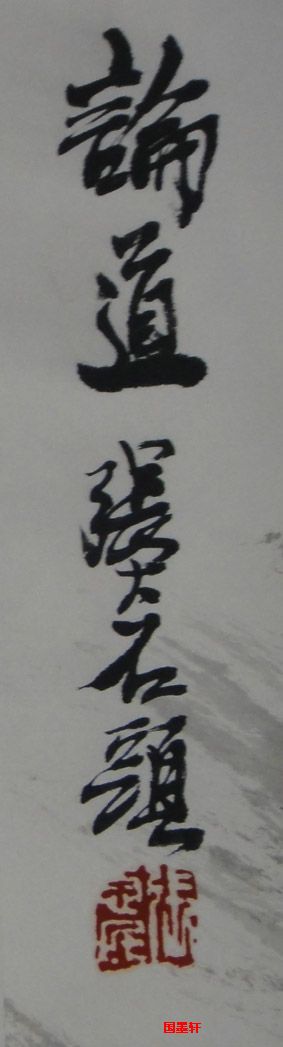 論道
張大石頭
国墨轩